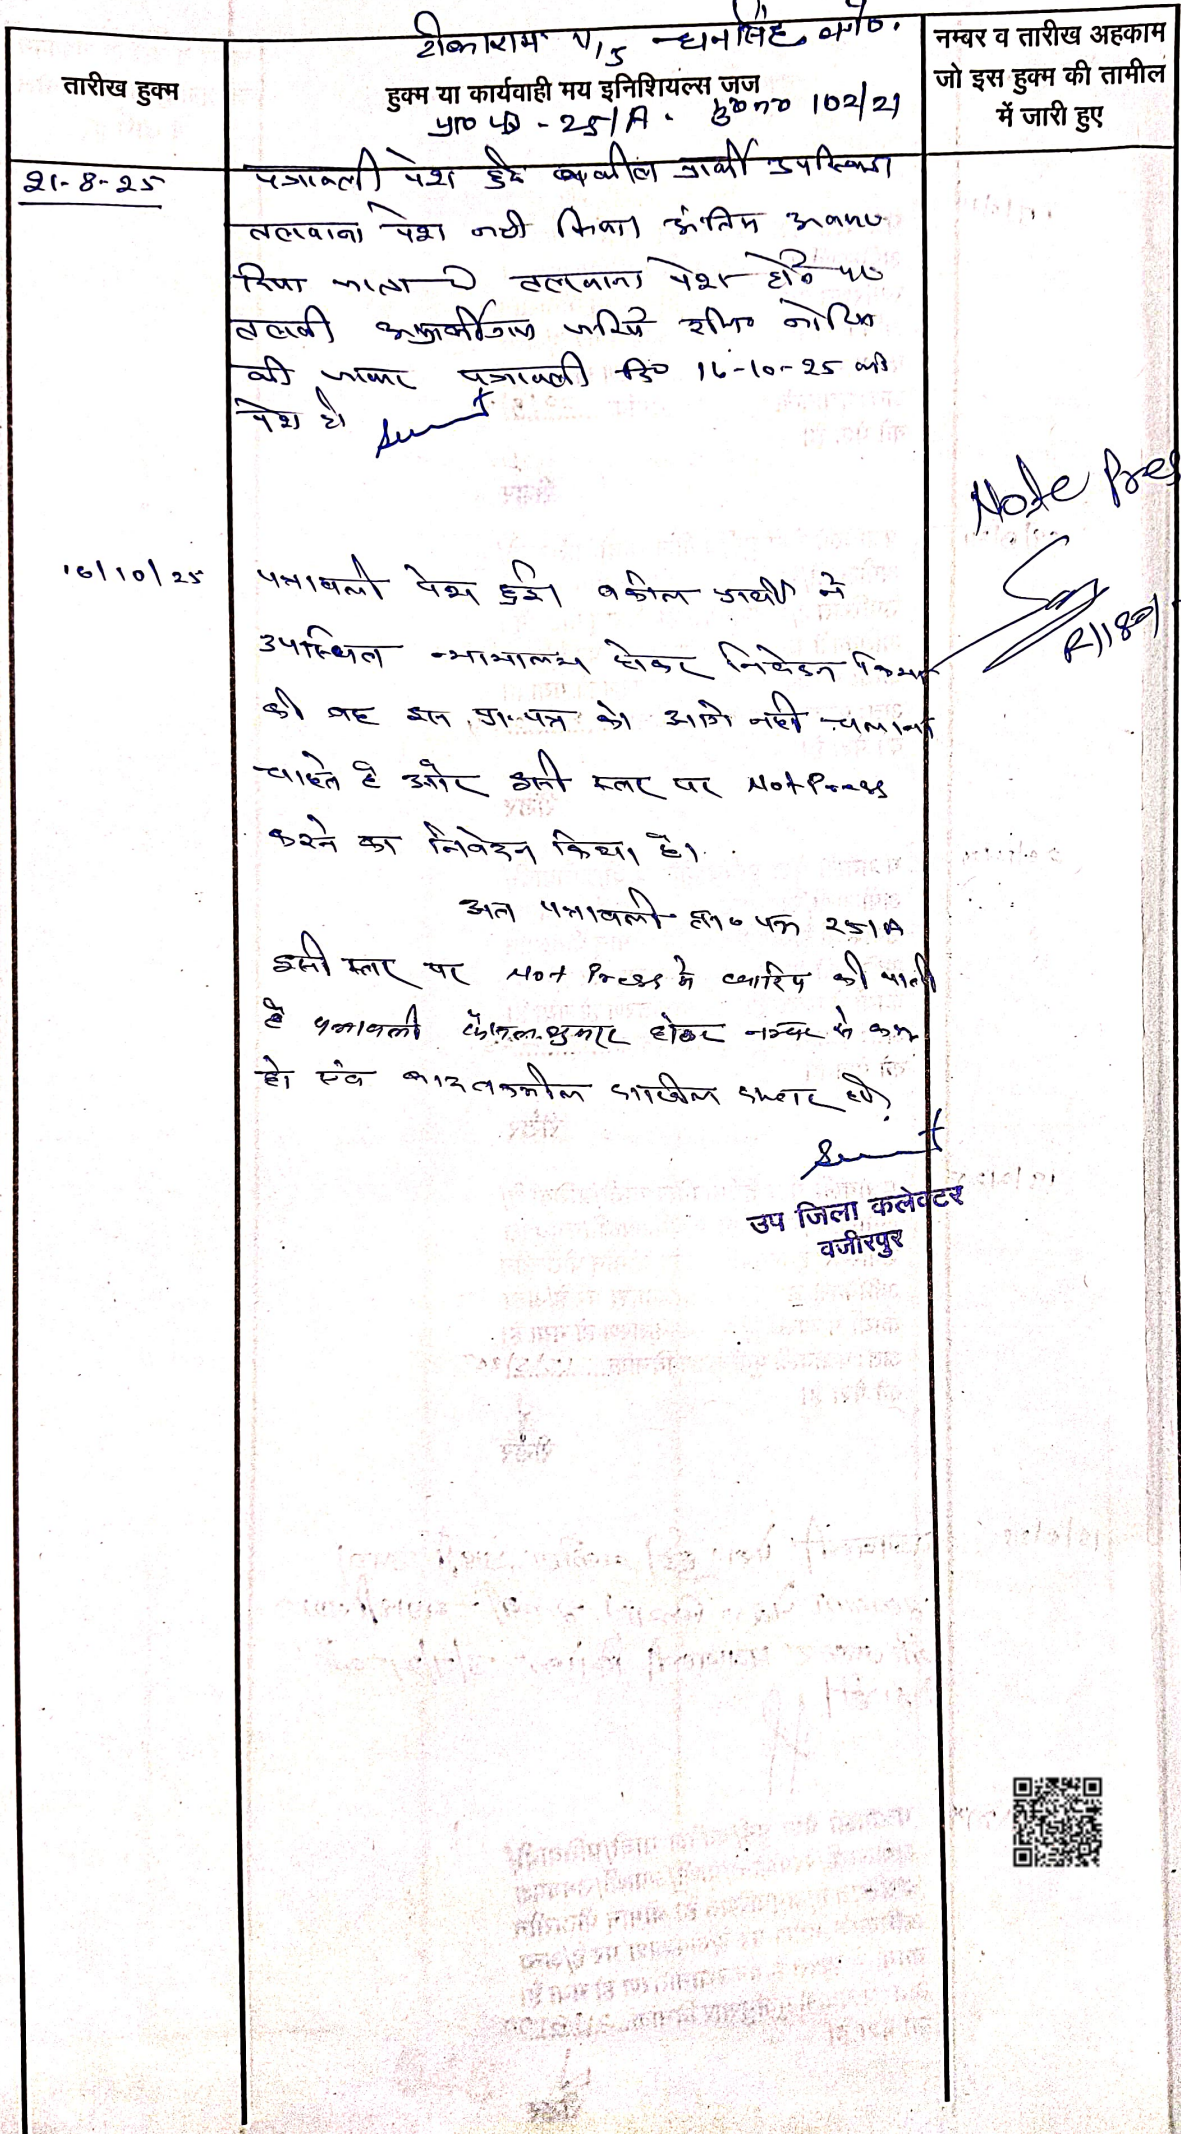 टीकाराम v/s धनसिंह वगै०
तारीख हुक्म
हुक्म या कार्यवाही मय इनिशियल्स जज
नम्बर व तारीख अहकाम
जो इस हुक्म की तामील
में जारी हुए
प्रा० प० - 251A. मु०न० 102/21
21-8-25
पत्रावली पेश हुई वकील प्रार्थी उपस्थित
तलवाना पेश नही किया अंतिम अवसर
दिया जाता है तलवाना पेश होने पर
तलबी अप्रार्थीगण जरिये रजि० नोटिस
की जाकर पत्रावली दि० 16-10-25 को
पेश हो
Note Pres
16/10/25
पत्रावली पेश हुई। वकील प्रार्थी ने
उपस्थित न्यायालय होकर निवेदन किया
की वह इस प्रा.पत्र को आगे नही चलाना
चाहते है और इसी स्तर पर Not Press
करने का निवेदन किया है।
अत पत्रावली प्रा० पत्र 251A
इसी स्तर पर Not Press मे खारिज की जाती
है पत्रावली फैसल शुमार होकर नम्बर से कम
हो एंव बाद तकमील दाखील दफ्तर हो
उप जिला कलेक्टर
वजीरपुर